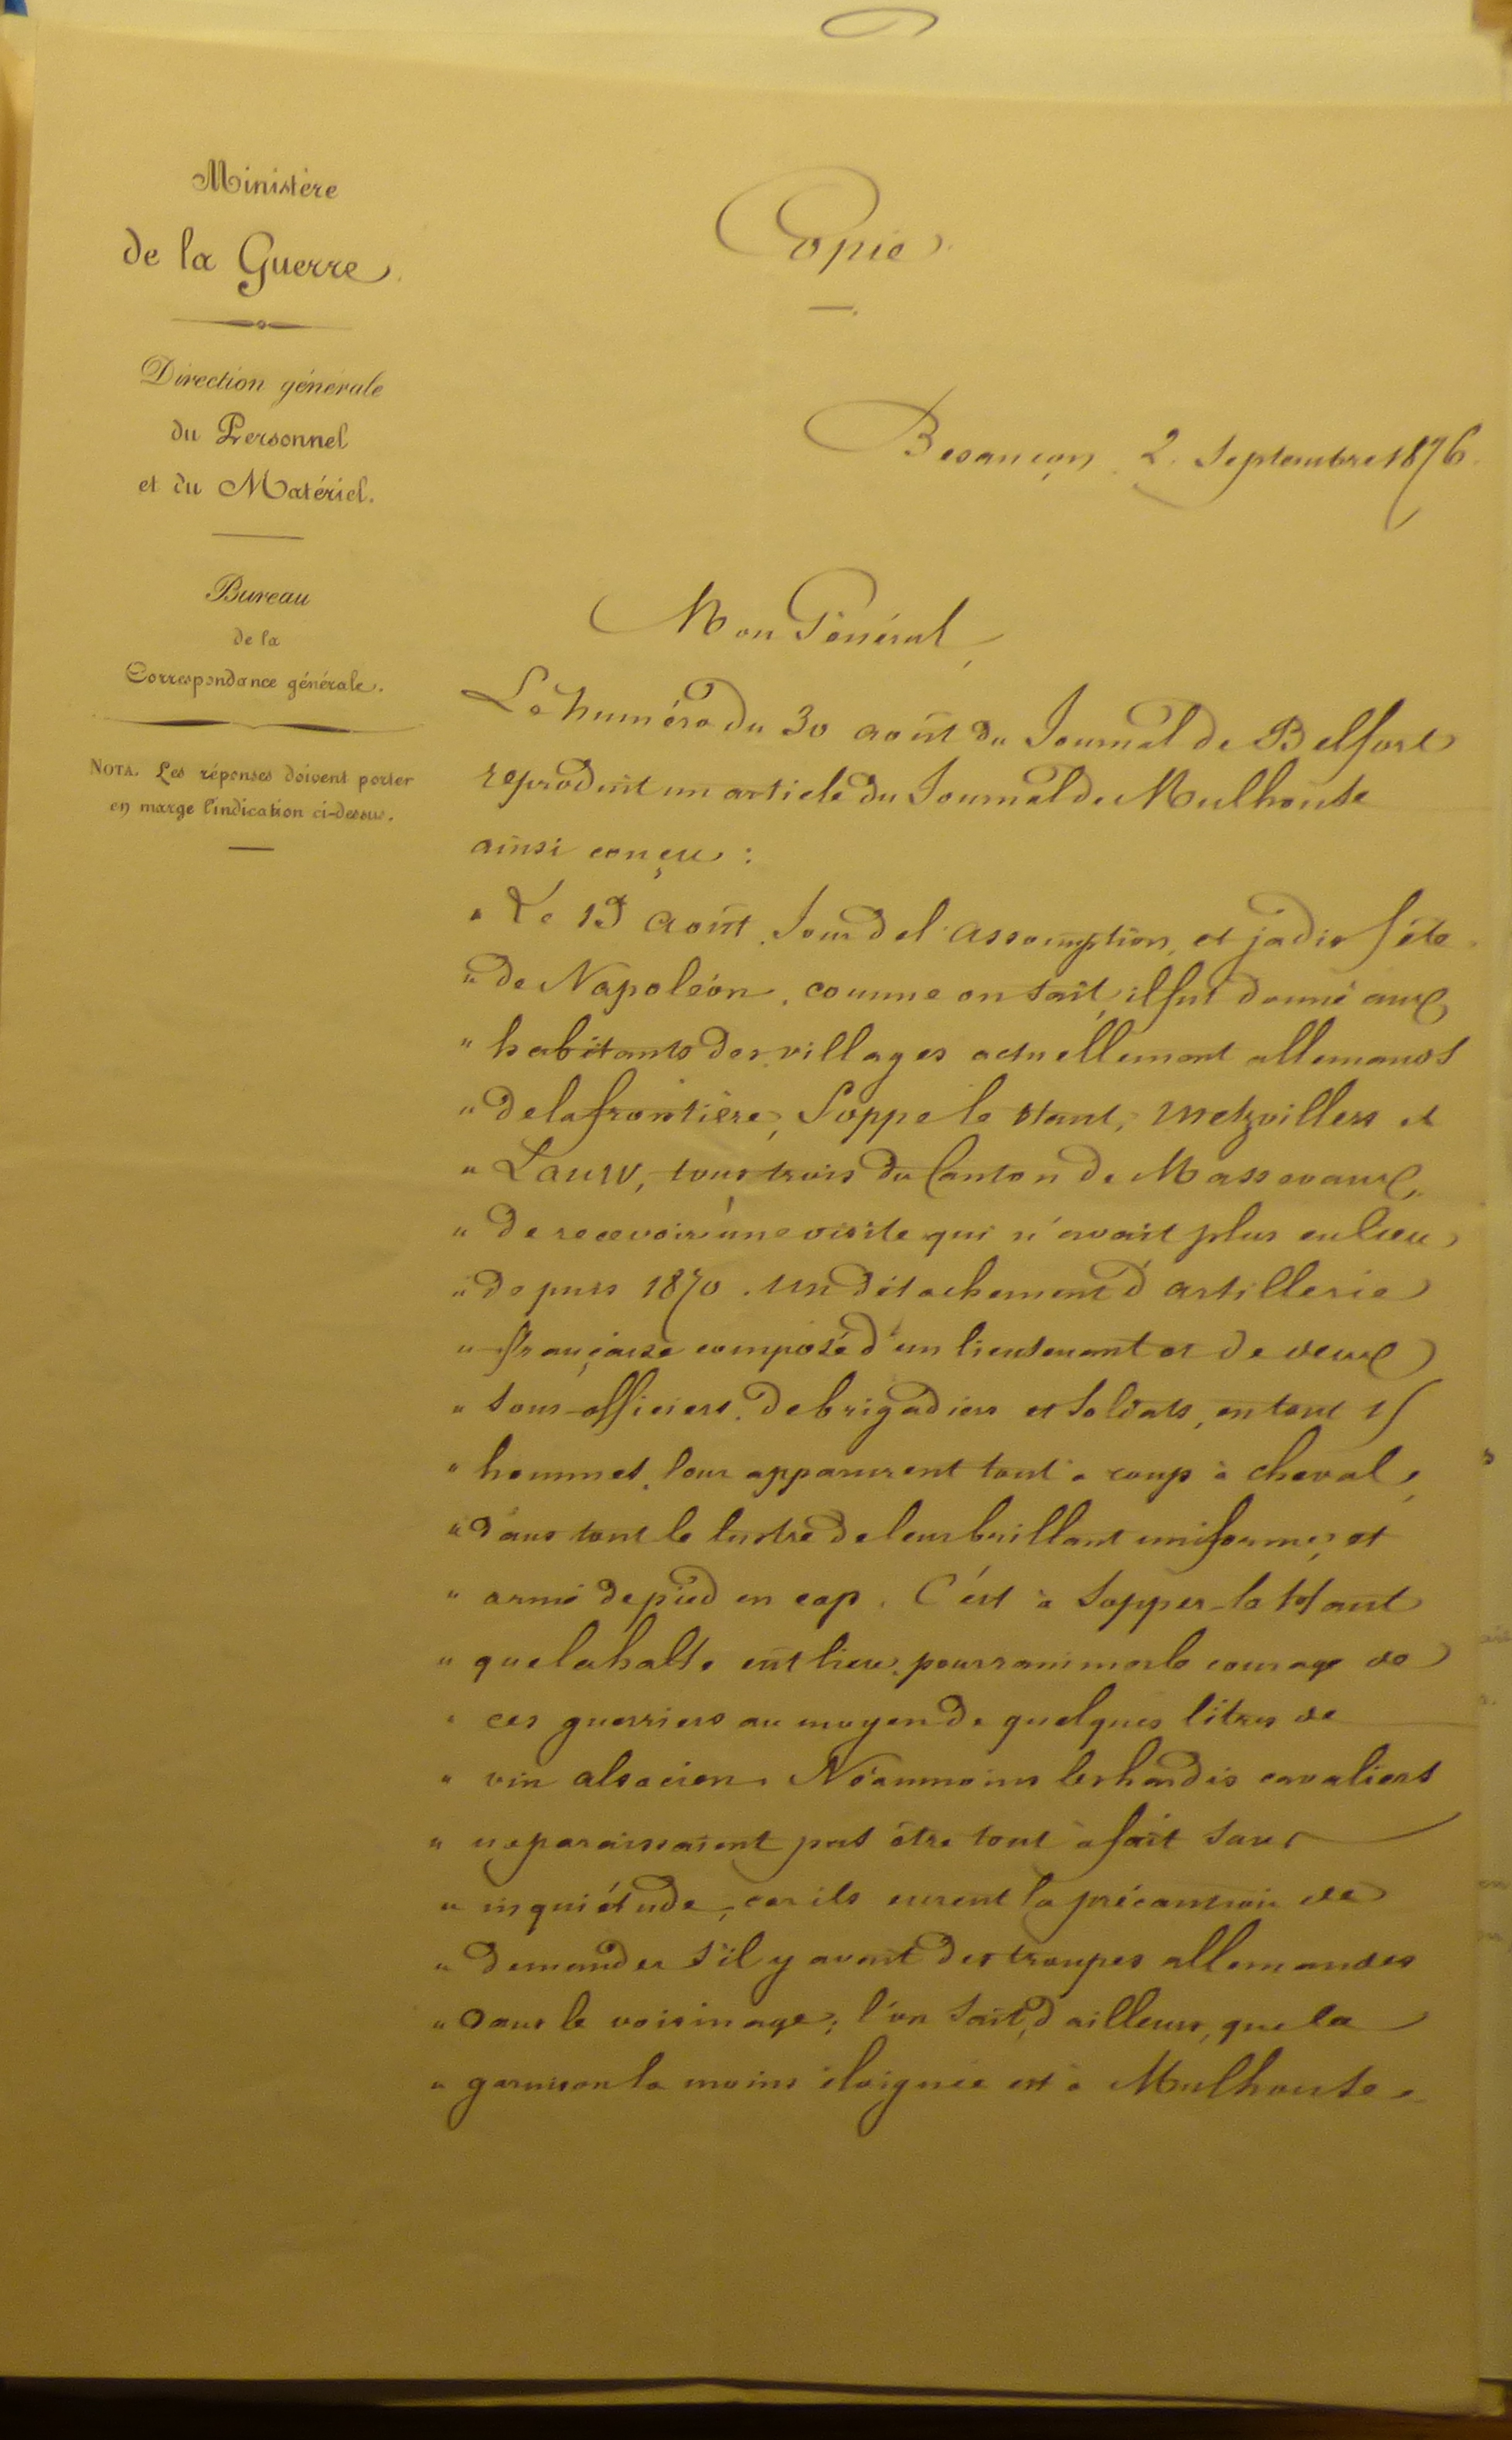 Ministère
de la Guerre.
Direction générale
du Personnel
et du Matériel.
Bureau
de la
Correspondance générale.
NOTA. Les réponses doivent porter
en marge l'indication ci-dessus.
Copie
Besançon, 2 Septembre 1876.
Mon Général,
Le Numéro du 30 août du Journal de Belfort
reproduit un article du Journal de Mulhouse
ainsi conçu :
" Le 15 Août, Jour de l'Assomption, et jadis fête
" de Napoléon, comme on sait, il fut donné aux
" habitants des villages actuellement allemands
" de la frontière, Soppe le Haut, Metzvillers et
" Lauw, tous trois du Canton de Massevaux,
" de recevoir une visite qui n'avait plus eu lieu
" depuis 1870. Un détachement d'artillerie
" française composé d'un lieutenant et de deux
" sous-officiers, de brigadiers et soldats, en tout
" hommes, leur apparurent tout à coup à cheval,
" dans tout le lustre de leur brillant uniforme, et
" armé de pied en cap. C'est à Soppe-le Haut
" que la halte eut lieu, pour ranimer le courage de
" ces guerriers au moyen de quelques litres de
" vin alsacien. Néanmoins les hardis cavaliers
" ne paraissaient pas être tout à fait sans
" inquiétude, car ils eurent la précaution de
" demander s'il y avait des troupes allemandes
" dans le voisinage; l'on sait, d'ailleurs, que la
" garnison la moins éloignée est à Mulhouse.